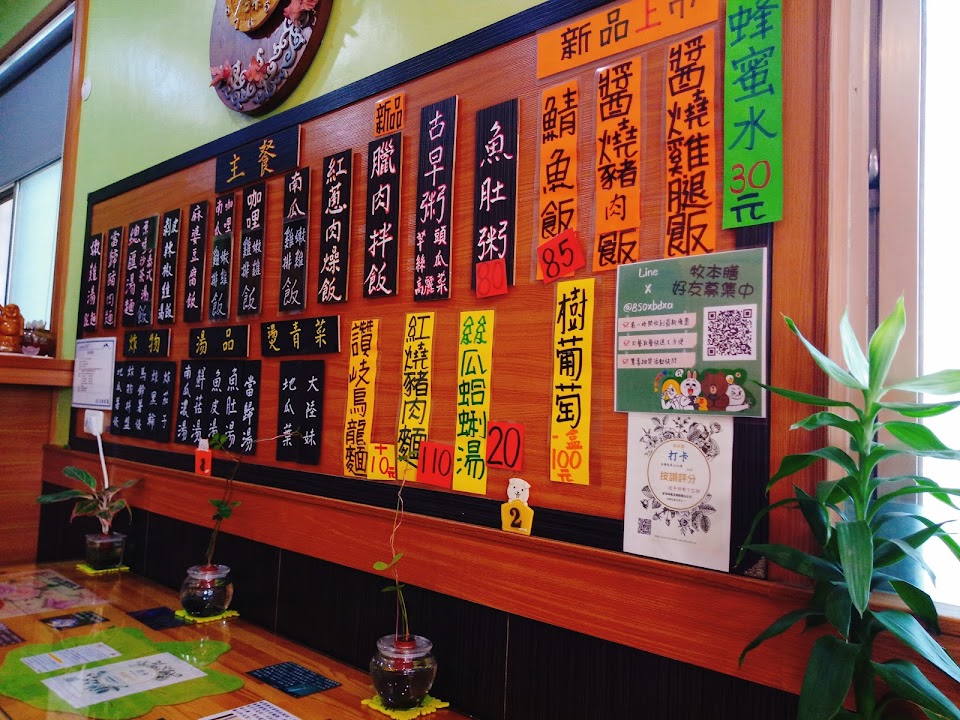 新品上市
蜂蜜水
30元
醬燒雞腿飯
醬燒豬肉飯
鯖魚飯
85
魚肚粥
80
古早粥
芋頭
絲瓜
高麗菜
新品
臘肉拌飯
紅蔥肉燥飯
南瓜嫩雞雞排飯
咖哩嫩雞雞排飯
麻婆豆腐飯
主餐
炸物
湯品
燙青菜
大陸妹
地瓜葉
當歸湯
魚肚湯
魚皮湯
鮮菇湯
南瓜濃湯
讚岐烏龍麵
十10元
紅燒豬肉麵
110
絲瓜蛤蜊湯
20
樹葡萄
一盒
100元
2
Line
X
@850xbdxa
牧本膳
好友募集中
打卡
按讚評分